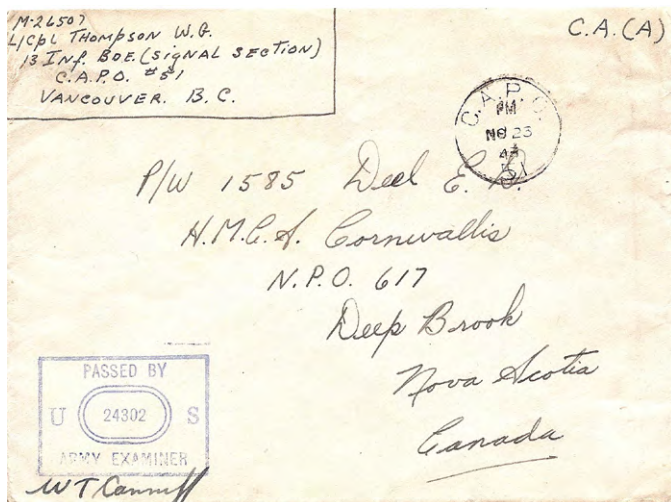 M-26507
L/Cpl THOMPSON W.G.
13 Inf. BDE. (SIGNAL SECTION)
C.A.P.O. #51
VANCOUVER. B.C.
C.A.(A)
C.A.P.O.
PM
NO 23
43
51
P/W 1585 Deel E.
H.M.C.S. Cornwallis
N.P.O. 617
Deep Brook
Nova Scotia
Canada
PASSED BY
U 24302 S
ARMY EXAMINER
WT Canniff